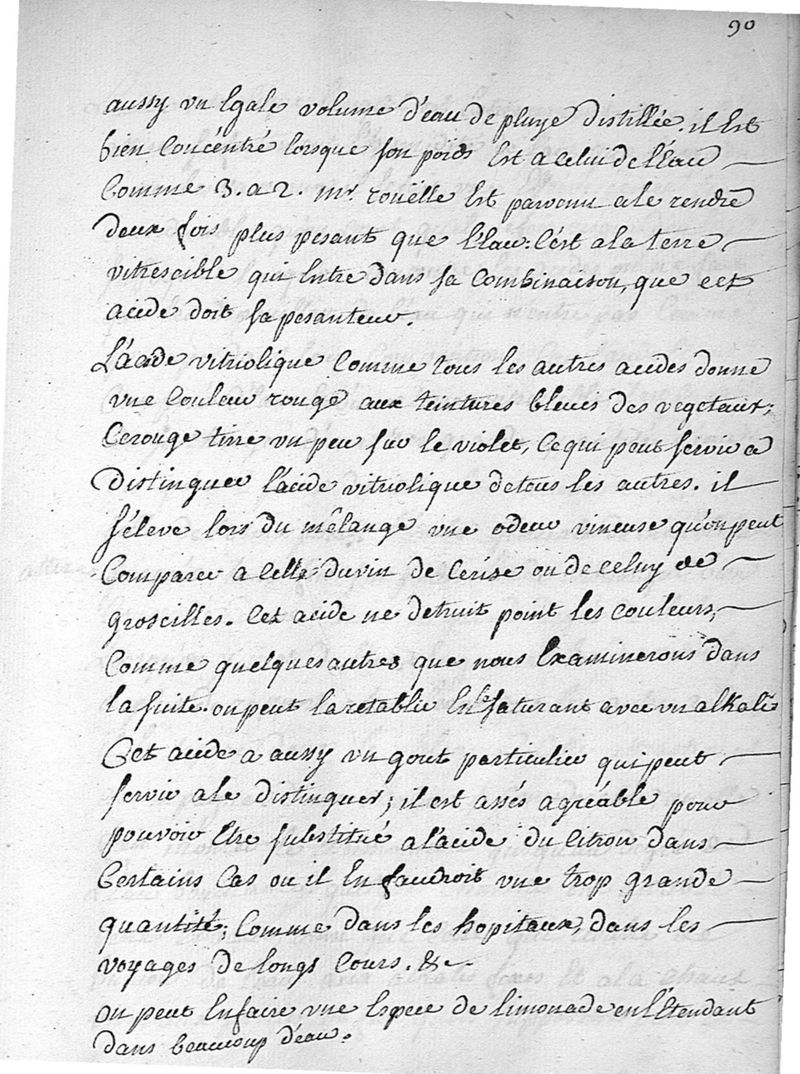 90
aussy un Egale volume d'eau de pluye distillée. il Est
bien Concentré lorsque son poids Est a celui de l'Eau
Comme 3. a 2. mr. rouëlle Est parvenu a le rendre
deux fois plus pesant que l'Eau: C'est a la terre
vitrescible qui Entre dans sa Combinaison, que cet
acide doit sa pesanteur.
L'acide vitriolique Comme tous les autres acides donne
une Couleur rouge aux teintures bleues des vegetaux;
Ce rouge tire un peu sur le violet, Ce qui peut servir a
Distinguer l'acide vitriolique de tous les autres. il
s'éleve lors du mêlange une odeur vineuse qu'on peut
Comparer a Celle du vin de Cerise ou de celuy de
groseilles. Cet acide ne detruit point les Couleurs,
Comme quelques autres que nous Examinerons dans
la suite. on peut la retablir En le saturant avec un alkali
Cet acide a aussy un gout particulier qui peut
servir a le distinguer; il est assés agréable pour
pouvoir Etre substitué a l'acide du Citron dans
Certains Cas ou il En faudroit une trop grande
quantité; Comme dans les hopitaux, dans les
voyages de longs Cours. &c
on peut En faire une Espece de limonade en l'Etendant
dans beaucoup d'eau.